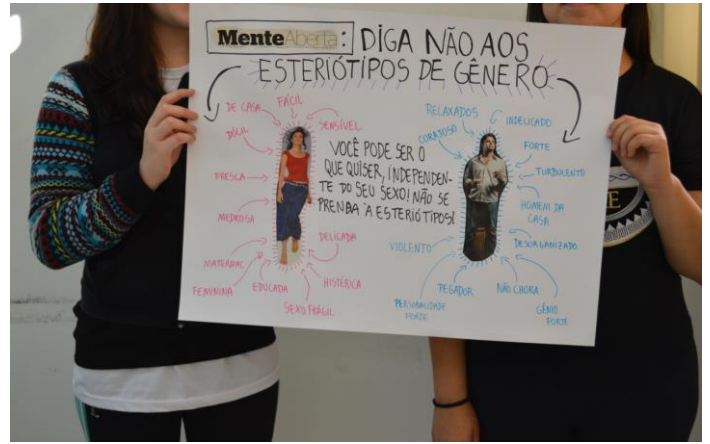 MenteAberta: DIGA NÃO AOS
ESTERIÓTIPOS DE GÊNERO
DE CASA
FÁCIL
SENSÍVEL
DÓCIL
FRESCA
MEDROSA
MATERNAL
FEMININA
EDUCADA
SEXO FRÁGIL
HISTÉRICA
DELICADA
VOCÊ PODE SER O
QUE QUISER, INDEPENDEN-
TE DO SEU SEXO! NÃO SE
PRENDA À ESTERIÓTIPOS!
RELAXADOS
INDELICADO
CORAJOSO
FORTE
TURBULENTO
HOMEM DA
CASA
DESORGANIZADO
VIOLENTO
PEGADOR
NÃO CHORA
PERSONALIDADE
FORTE
GÊNIO
FORTE